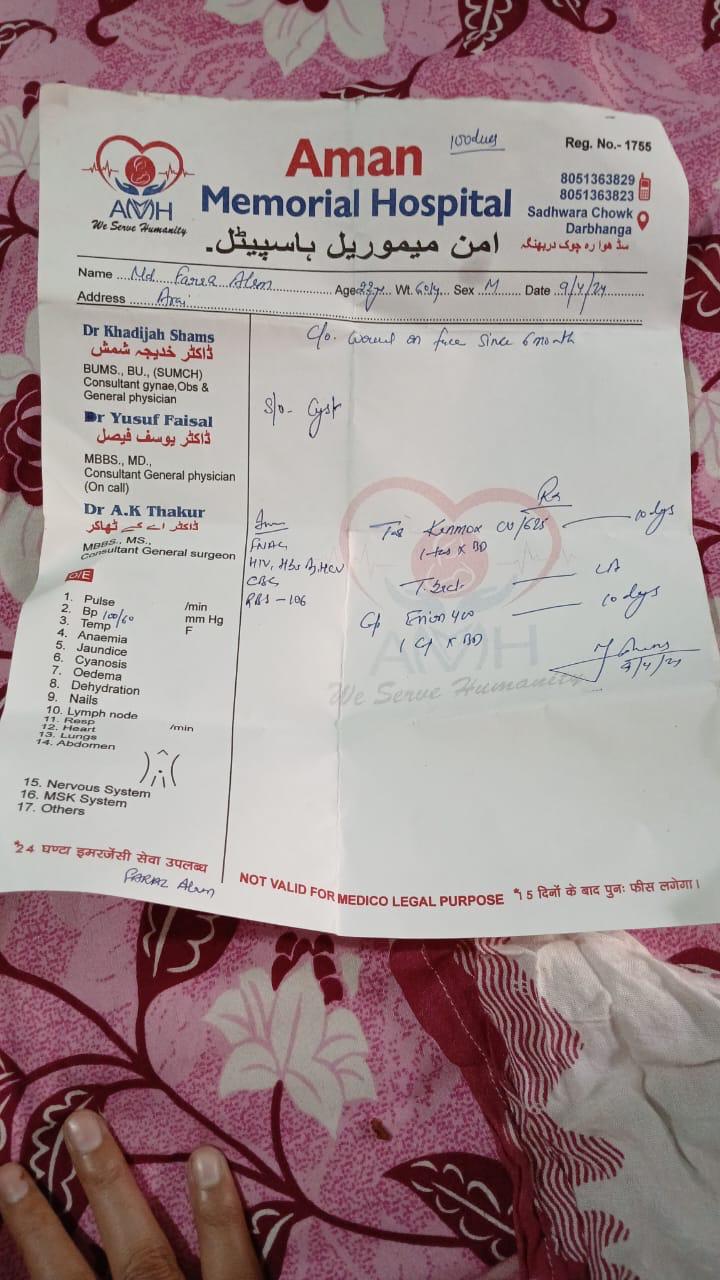 100 dues
Aman
Memorial Hospital
امن میموریل ہاسپیٹل۔
AMH
We Serve Humanity
Reg. No.- 1755
8051363829
8051363823
Sadhwara Chowk
Darbhanga
سڈھوارہ چوک دربھنگہ
Name Md. Faraz Alam Age 22y Wt. 60kg Sex M Date 9/4/24
Address
Dr Khadijah Shams
ڈاکٹر خدیجہ شمش
BUMS., BU., (SUMCH)
Consultant gynae,Obs &
General physician
Dr Yusuf Faisal
ڈاکٹر یوسف فیصل
MBBS., MD.,
Consultant General physician
(On call)
Dr A.K Thakur
ڈاکٹر اے کے ٹھاکر
MBBS., MS.,
Consultant General surgeon
O/E
1. Pulse /min
2. Bp 100/60 mm Hg
3. Temp F
4. Anaemia
5. Jaundice
6. Cyanosis
7. Oedema
8. Dehydration
9. Nails
10. Lymph node
11. Resp /min
12. Heart
13. Lungs
14. Abdomen
15. Nervous System
16. MSK System
17. Others
C/o. wound on face since 6 month
S/o- Cyst
FNAC
HIV, HBsAg, HCV
CBC
RBS - 106
Rx
Tab Kenmox CV/625 10 dys
1 tab x BD
Cap 400 10 dys
1 Cap x BD
9/4/24
AMH
We Serve Humanity
*24 घण्टा इमरजेंसी सेवा उपलब्ध
FARAZ Alam
NOT VALID FOR MEDICO LEGAL PURPOSE
*15 दिनों के बाद पुनः फीस लगेगा।